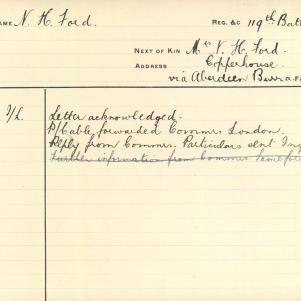 NAME N. H. Ford. REG. &C 119th Batt
NEXT OF KIN Mr N. H. Ford.
ADDRESS Copperhouse.
via Aberdeen Burra
I/L. Letter acknowledged.
P/Cable forwarded Commrs London.
Reply from Commrs. Particulars sent Inq
Further information from Commrs same for